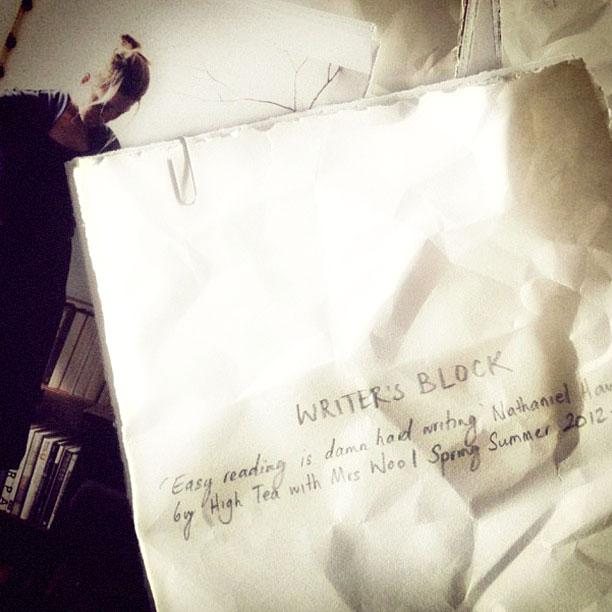 WRITER'S BLOCK
'Easy reading is damn hard writing' Nathaniel Haw
by High Tea with Mrs Wool Spring Summer 2012